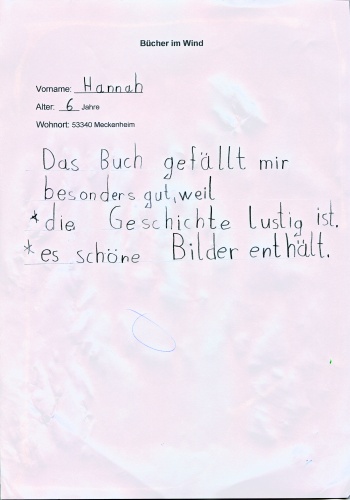 Bücher im Wind
Vorname: Hannah
Alter: 6 Jahre
Wohnort: 53340 Meckenheim
Das Buch gefällt mir
besonders gut, weil
* die Geschichte lustig ist.
* es schöne Bilder enthält.